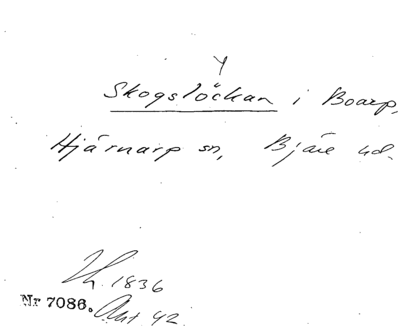 Y
Skogslöckan i Boarp,
Hjärnarp sn, Bjäre hd.
Th. 1836
Nr 7086. Akt 42